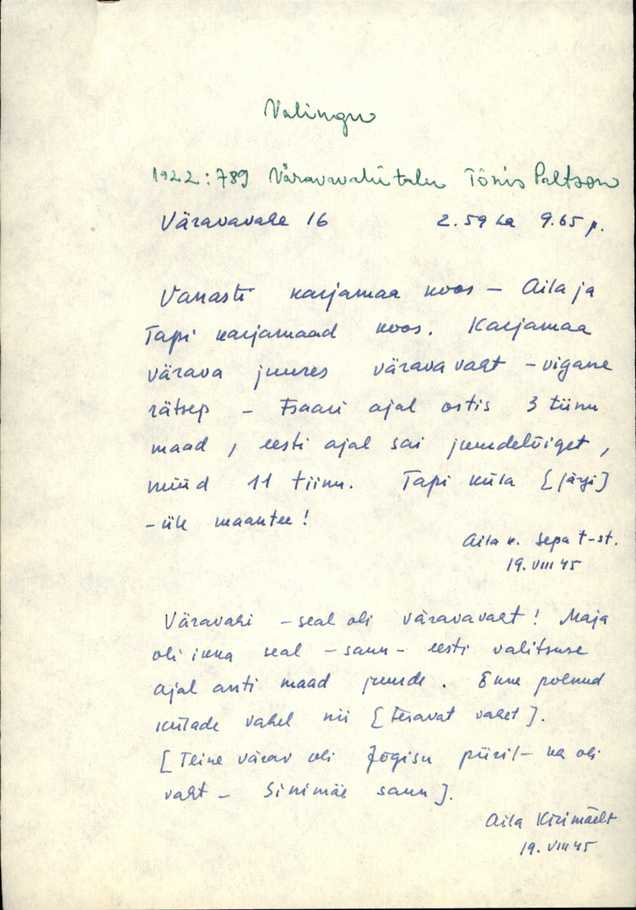 Valingu
1922:789 Väravavahi talu Tõnis Paltson
Väravavahe 16 2.59 ha 9.65 p.
Vanasti karjamaa koos – Aila ja
Tapi karjamaad koos. Karjamaa
värava juures väravavaht – vigane
rätsep – Tsaari ajal ostis 3 tiinu
maad, eesti ajal sai juurdelõiget,
nüüd 11 tiinu. Tapi küla [järgi]
– üle maantee!
Aila k. Sepa t-st.
19. VIII 45
Väravahi – seal oli väravavaht! Maja
oli ikka seal – saun – eesti valitsuse
ajal anti maad juurde. Enne polnud
külade vahel nii [teravat vahet].
[Teine värav oli Jõgisu piiril – ka oli
vaht – Sinimäe saun].
Aila Kirimäelt
19. VIII 45